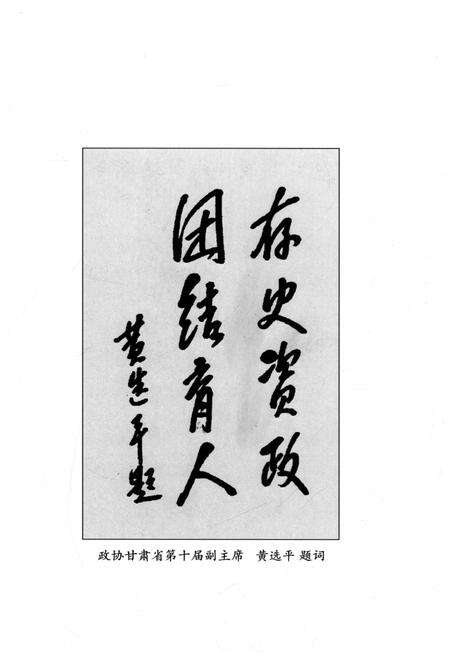 存史资政
团结育人
黄选平题
政协甘肃省第十届副主席 黄选平 题词